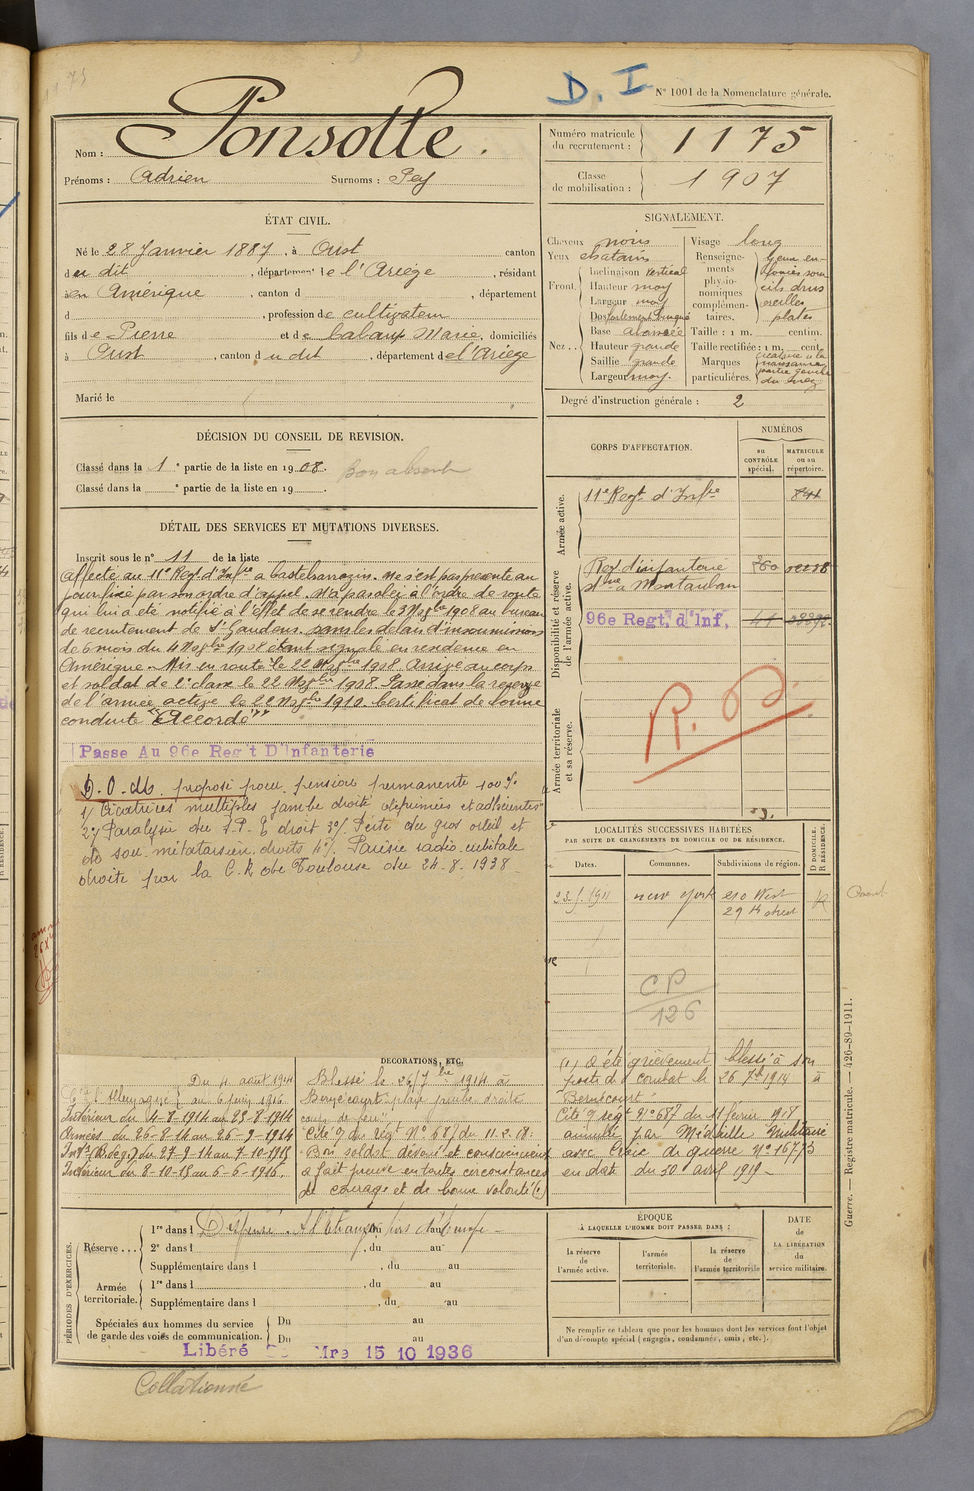 1175
D. I
N° 1001 de la Nomenclature générale.
Nom : Ponsolle.
Prénoms : Adrien Surnoms : Pey
Numéro matricule du recrutement : 1175
Classe de mobilisation : 1907
ÉTAT CIVIL.
Né le 28 Janvier 1887, à Oust canton
du dit, département de l'Ariège, résidant
à en Amérique, canton d , département
d , profession de cultivateur
fils de Pierre et de Marie, domiciliés
à Oust, canton du dit, département de l'Ariège
Marié le
SIGNALEMENT.
Cheveux noirs
Yeux chatains
Front. Inclinaison vertical
Hauteur moy
Largeur moy
Nez. Dos
Base
Hauteur grande
Saillie grande
Largeur moy.
Visage long
Renseignements physionomiques complémentaires. yeux enfoncés sourcils drus oreilles plates
Taille : 1 m. centim.
Taille rectifiée : 1 m. cent.
Marques particulières. cicatrice à la naissance partie gauche du nez
Degré d'instruction générale : 2
DÉCISION DU CONSEIL DE REVISION.
Classé dans la 1e partie de la liste en 1908. bon absent
Classé dans la e partie de la liste en 19 .
DÉTAIL DES SERVICES ET MUTATIONS DIVERSES.
Inscrit sous le n° 11 de la liste
Affecté au 11e Regt d'Infie à Castelsarrazin. Ne s'est pas présenté au
jour fixé par son ordre d'appel. N'a pas obéi à l'ordre de route
qui lui a été notifié à l'effet de se rendre le 3 9bre 1908 au bureau
de recrutement de St Gaudens. dans les délais d'insoumission
de 6 mois du 4 9bre 1908 étant signalé en résidence en
Amérique. Mis en route le 22 9bre 1908. Arrivé au corps
et soldat de 2e classe le 22 9bre 1908. Passé dans la réserve
de l'armée active le 22 9bre 1910. Certificat de bonne
conduite "Accordé"
Passe Au 96e Reg't D'Infanterie
D. O. db. proposé pour pension permanente 100%.
1/ Cicatrices multiples jambe droite déprimées et adhérentes
2/ Paralysie du S.P.E droit 3°/ Perte du gros orteil et
de son métatarsien droits 4°/ Parésie radio cubitale
droite par la C.R de Toulouse du 24.8.1938
CORPS D'AFFECTATION.
NUMÉROS
au CONTRÔLE spécial.
MATRICULE ou au répertoire.
Armée active.
11e Regt d'Infie
841
Disponibilité et réserve de l'armée active.
Reg. d'infanterie
stnné à Montauban
96e Regt. d'Inf,
Armée territoriale et sa réserve.
LOCALITÉS SUCCESSIVES HABITÉES
PAR SUITE DE CHANGEMENTS DE DOMICILE OU DE RÉSIDENCE.
Dates.
Communes.
Subdivisions de région.
D DOMICILE. R RÉSIDENCE.
new york 210 West
29th street
R
CP
126
Du 4 août 1914
Cre l'Allemagne au 6 juin 1916
Intérieur du 4-8-1914 au 25-8-1914
Armées du 26-8-14 au 26-9-1914
Intr (B. de g.) du 27-9-14 au 7-10-1915
Intérieur du 8-10-15 au 6-6-1916
DÉCORATIONS, ETC.
Blessé le 26/7bre 1914 à
plaie jambe droite
coup de feu
Cité O du régt N° 687 du 11.2.18.
"Bon soldat dévoué et consciencieux
a fait preuve en toutes circonstances
de courage et de bonne volonté (1)
(1) a été grièvement blessé à son
poste de combat le 26 7bre 1914 à
Cité O régt N° 687 du 11 février 1918
par Médaille Militaire
avec Croix de guerre N° 16773
en date du 30 avril 1919-
PÉRIODES D'EXERCICES.
Réserve... 1re dans l Dispensé. A l'étranger hors d'europe-
2e dans l , du au
Supplémentaire dans l , du au
Armée territoriale. 1re dans l , du au
Supplémentaire dans l , du au
Spéciales aux hommes du service de garde des voies de communication. Du au
Du au
Libéré Mre 15 10 1936
ÉPOQUE
À LAQUELLE L'HOMME DOIT PASSER DANS :
la réserve de l'armée active.
l'armée territoriale.
la réserve de l'armée territoriale
DATE de LA LIBÉRATION du service militaire.
Ne remplir ce tableau que pour les hommes dont les services font l'objet
d'un décompte spécial (engagés, condamnés, omis, etc.).
Guerre. — Registre matricule. — 426-89-1911.
Collationné